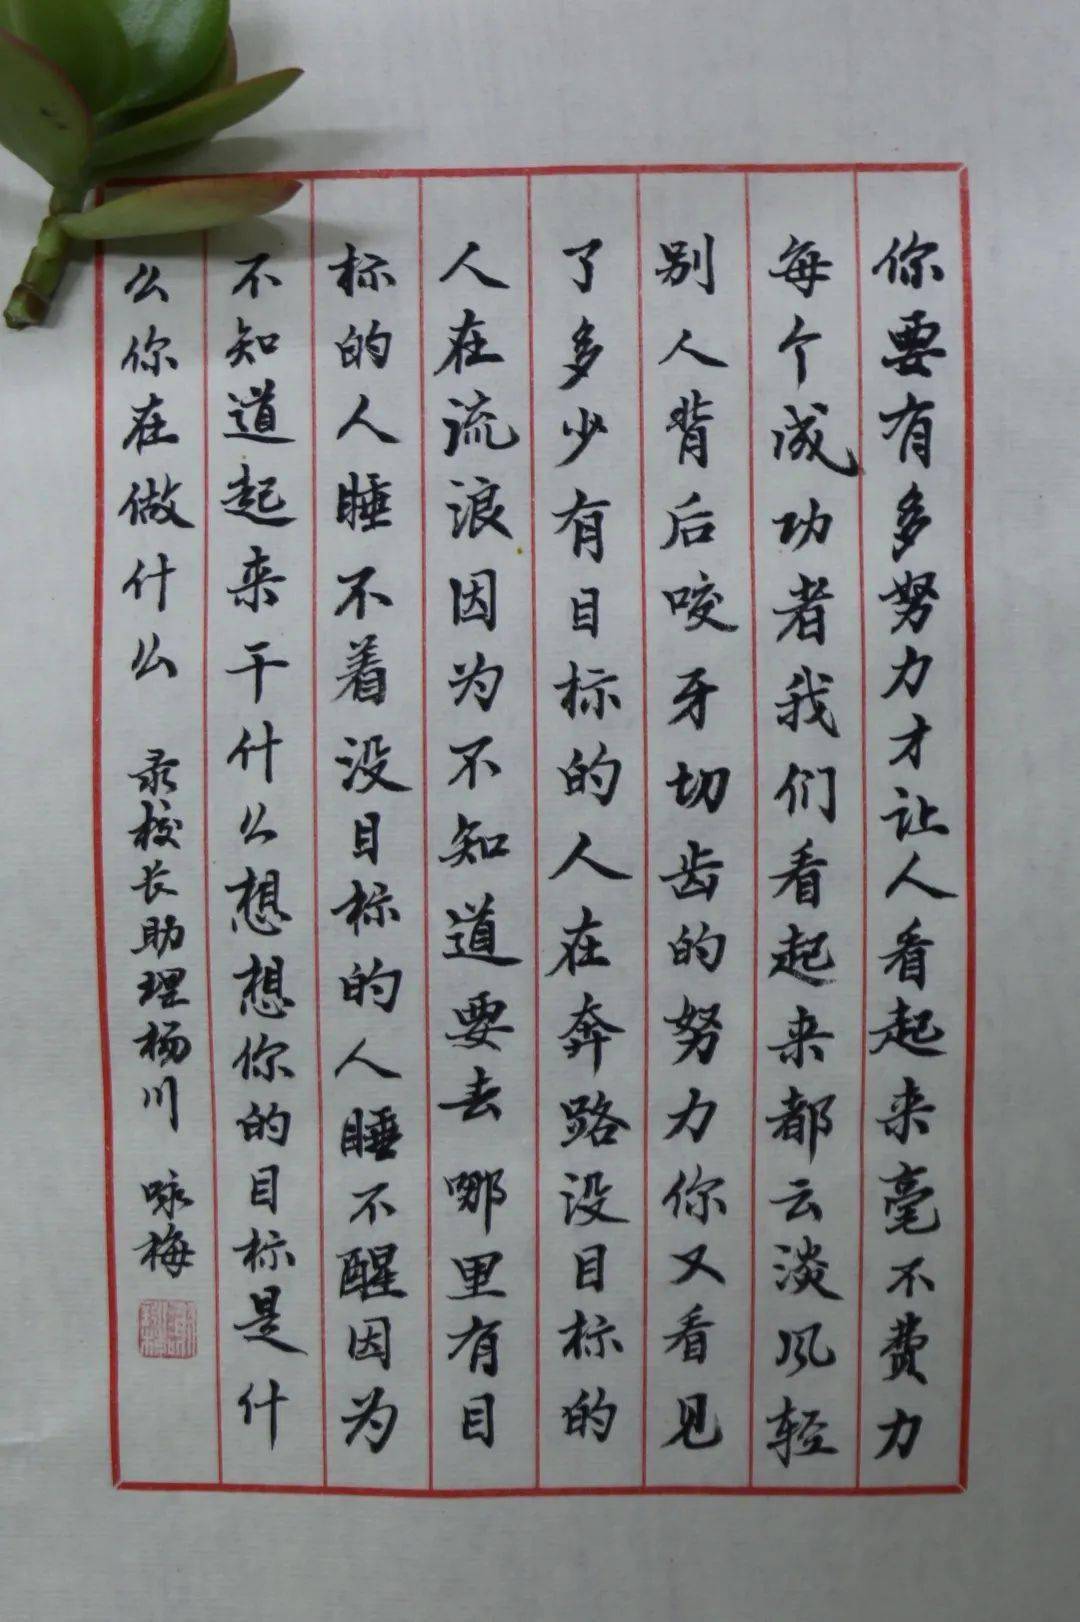 你要有多努力才让人看起来毫不费力
每个成功者我们看起来都云淡风轻
别人背后咬牙切齿的努力你又看见
了多少有目标的人在奔路没目标的
人在流浪因为不知道要去哪里有目
标的人睡不着没目标的人睡不醒因为
不知道起来干什么想想你的目标是什
么你在做什么 录校长助理杨川 咏梅